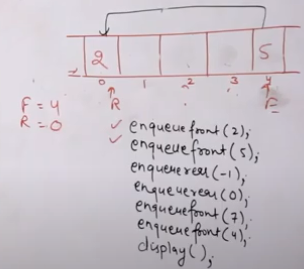 2 5
0 1 2 3 4
R F
F = 4
R = 0
enqueuefront (2);
enqueuefront (5);
enqueuerear (-1);
enqueuerear (0);
enqueuefront (7);
enqueuefront (4);
display ();